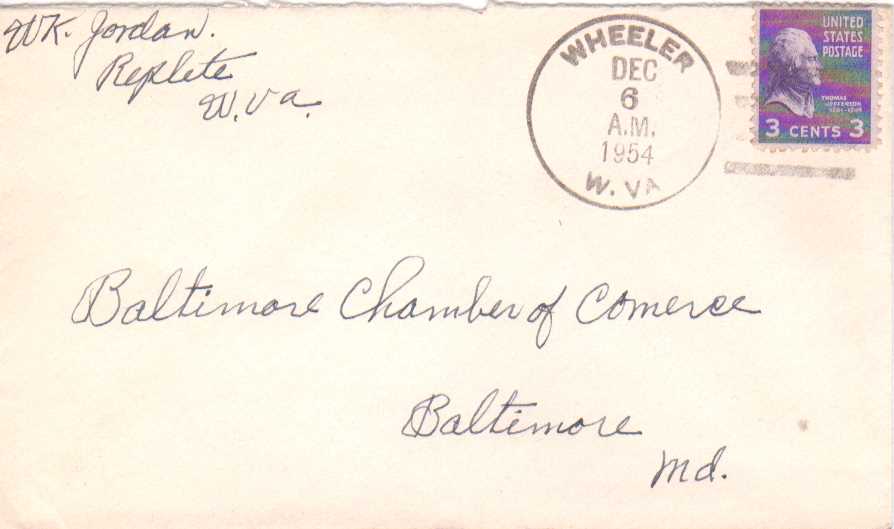 WK. Jordan.
Replete
W. Va.
WHEELER
DEC
6
A.M.
1954
W. VA
UNITED
STATES
POSTAGE
THOMAS
JEFFERSON
3 CENTS 3
Baltimore Chamber of Comerce
Baltimore
Md.